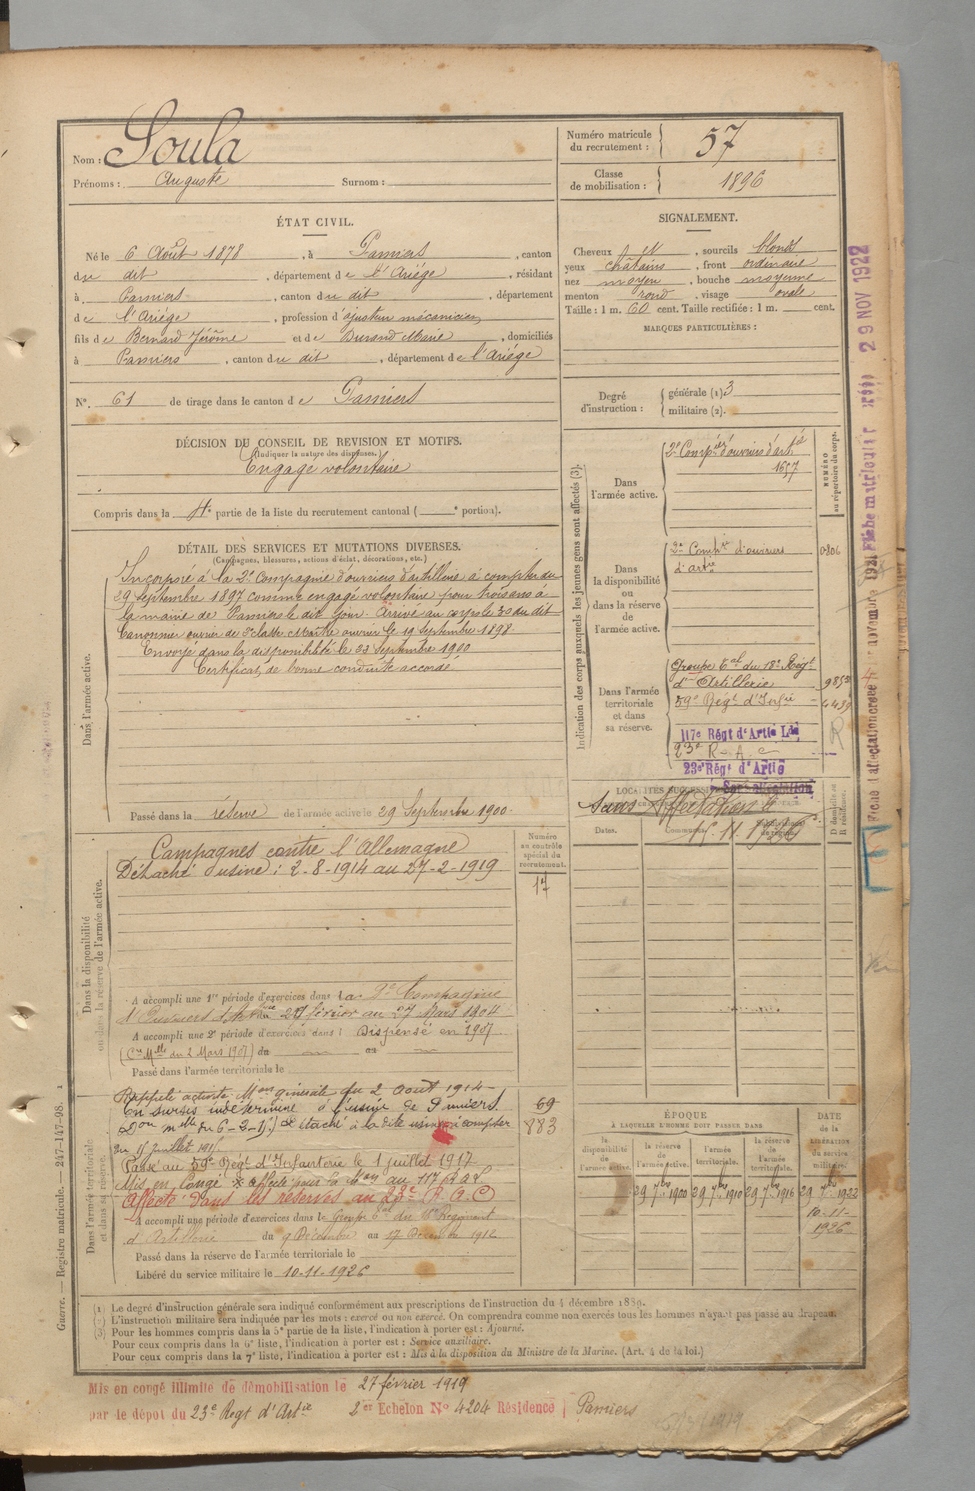 Nom : Soula
Prénoms : Auguste Surnom :
Numéro matricule du recrutement : 57
Classe de mobilisation : 1896
ÉTAT CIVIL.
Né le 6 Août 1878, à Pamiers, canton
du dit, département de l'Ariège, résidant
à Pamiers, canton du dit, département
de l'Ariège, profession d'ajusteur mécanicien
fils de Bernard Jérôme et de Durand Marie, domiciliés
à Pamiers, canton du dit, département de l'Ariège
N°. 61 de tirage dans le canton de Pamiers
SIGNALEMENT.
Cheveux et, sourcils blond
yeux châtains, front ordinaire
nez moyen, bouche moyenne
menton rond, visage ovale
Taille : 1 m. 60 cent. Taille rectifiée : 1 m. cent.
MARQUES PARTICULIÈRES :
Degré d'instruction : générale (1) 3
militaire (2).
DÉCISION DU CONSEIL DE REVISION ET MOTIFS.
(Indiquer la nature des dispenses.)
Engagé volontaire
Compris dans la 4e partie de la liste du recrutement cantonal ( e portion).
DÉTAIL DES SERVICES ET MUTATIONS DIVERSES.
(Campagnes, blessures, actions d'éclat, décorations, etc.)
Dans l'armée active.
Incorporé à la 2e Compagnie d'ouvriers d'artillerie à compter du
29 septembre 1897 comme engagé volontaire pour trois ans à
la mairie de Pamiers le dit jour. Arrivé au corps le 30 du dit
Canonnier ouvrier de 2e classe. Maître ouvrier le 19 Septembre 1898.
Envoyé dans la disponibilité le 22 Septembre 1900
Certificat de bonne conduite accordé.
Passé dans la réserve de l'armée active le 29 Septembre 1900.
Indication des corps auxquels les jeunes gens sont affectés (3).
NUMÉRO au répertoire du corps.
Dans l'armée active.
2e Compie d'ouvriers d'artie
1657
Dans la disponibilité ou dans la réserve de l'armée active.
2e Compie d'ouvriers 0806
d'artie
Dans l'armée territoriale et dans sa réserve.
Groupe tal du 18e Régt
d'Artillerie
59e Régt d'Infie
117e Régt d'Artie Lde
23e R. A. C
23e Régt d'Artie
Sans Affectation le
15.11.1926
Dates.
D domicile ou R résidence.
Dans la disponibilité ou dans la réserve de l'armée active.
Numéro au contrôle spécial du recrutement.
17
Campagnes contre l'Allemagne
Détaché d'usine : 2-8-1914 au 27-2-1919
A accompli une 1re période d'exercices dans la 2e Compagnie
d'Ouvriers d'Artie du 27 février au 27 Mars 1904
A accompli une 2e période d'exercices dans : Dispensé en 1907
(Cre Melle du 2 Mars 1907) du au
Passé dans l'armée territoriale le
Dans l'armée territoriale et dans sa réserve.
Rappelé activité Mon générale du 2 Août 1914
En sursis indéterminé à l'usine de Pamiers.
Don melle du 6-3-15) Détaché à la dite usine à compter
du 15 juillet 1915
69
883
Passé au 59e Régt d'Infanterie le 1 juillet 1917
Mis en congé Affecté pour la Mon au 117 R A L
Affecté dans les réserves au 23e R. A. C
A accompli une période d'exercices dans le Groupe tal du 18e Régiment
d'Artillerie du 9 Décembre au 17 Décembre 1912
Passé dans la réserve de l'armée territoriale le
Libéré du service militaire le 10-11-1926
ÉPOQUE
À LAQUELLE L'HOMME DOIT PASSER DANS
la disponibilité de l'armée active.
la réserve de l'armée active.
l'armée territoriale.
la réserve de l'armée territoriale.
DATE de la LIBÉRATION du service militaire.
29 7bre 1900
29 7bre 1910
29 7bre 1916
29 7bre 1922
10-11-1926
(1) Le degré d'instruction générale sera indiqué conformément aux prescriptions de l'instruction du 4 décembre 1889.
(2) L'instruction militaire sera indiquée par les mots : exercé ou non exercé. On comprendra comme non exercés tous les hommes n'ayant pas passé au drapeau.
(3) Pour les hommes compris dans la 5e partie de la liste, l'indication à porter est : Ajourné.
Pour ceux compris dans la 6e liste, l'indication à porter est : Service auxiliaire.
Pour ceux compris dans la 7e liste, l'indication à porter est : Mis à la disposition du Ministre de la Marine. (Art. 4 de la loi.)
Mis en congé illimité de démobilisation le 27 février 1919
par le dépôt du 23e Regt d'Artie 2er Echelon N° 4204 Résidence Pamiers
Guerre. — Registre matricule. — 247-147-98.
29 NOV 1922